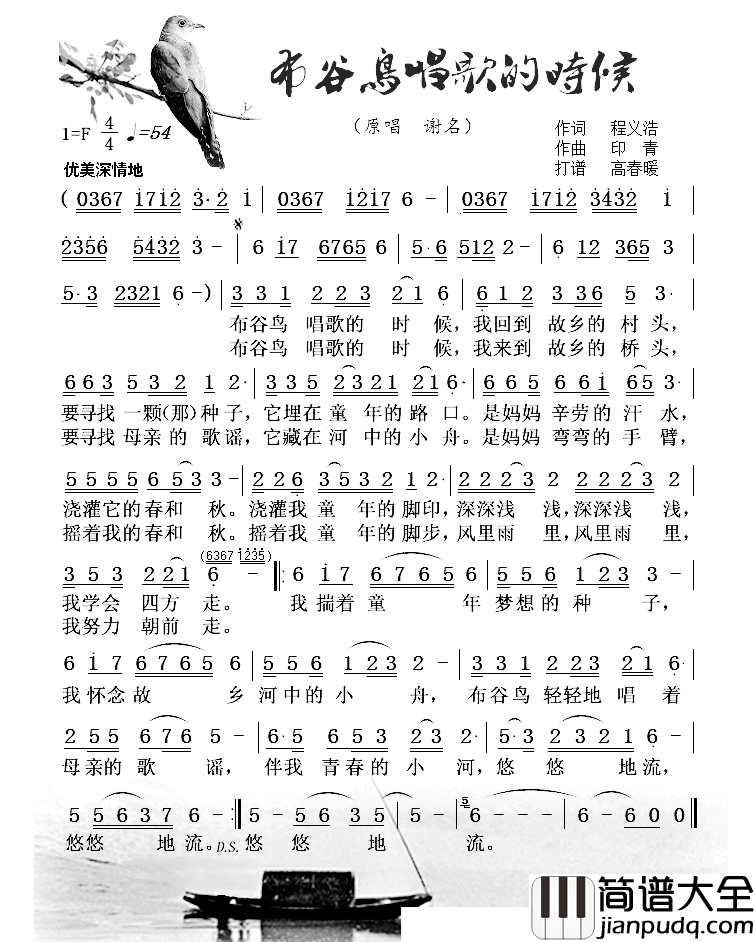 布谷鸟唱歌的時候
（原唱 谢名）
作词 程义浩
作曲 印青
打谱 高春暖
1=F 4/4 ♩=54
优美深情地
( 0367 1712 3·2 1 | 0367 1217 6 - | 0367 1712 3432 1 |
2356 5432 3 - | 6 17 6765 6 | 5·6 512 2 - | 6 12 365 3 |
5·3 2321 6 -) | 331 223 21 6 | 612 336 5 3· |
布谷鸟 唱歌的 时 候，我回到 故乡的 村 头，
布谷鸟 唱歌的 时 候，我来到 故乡的 桥 头，
663 532 1 2· | 335 2321 21 6· | 665 661 65 3· |
要寻找 一颗(那)种 子，它埋在 童 年的 路 口。是妈妈 辛劳的 汗 水，
要寻找 母亲的 歌 谣，它藏在 河 中的 小 舟。是妈妈 弯弯的 手 臂，
5555 6 53 3 - | 226 3532 1 2· | 2223 2 - 2223 2 - |
浇灌它的春和 秋。浇灌我 童 年的 脚印，深深浅 浅，深深浅 浅，
摇着我的春和 秋。摇着我 童 年的 脚步，风里雨 里，风里雨 里，
(6367 1235)
353 221 6 - ‖: 6 17 6765 6 | 556 123 3 - |
我学会 四方 走。 我 揣着 童 年 梦想的 种 子，
我努力 朝前 走。
6 17 6765 6 | 556 123 2 - | 331 223 21 6· |
我 怀念 故 乡 河中的 小 舟， 布谷鸟 轻轻地 唱 着
255 676 5 - | 6·5 653 23 2 | 5·3 2321 6 - |
母亲的 歌 谣， 伴我 青春的 小 河，悠 悠 地流，
5 5637 6 - :‖ 5 - 56 35 | 5 - 5 6 - - - | 6 - 600 ‖
悠悠 地 流。D.S. 悠 悠 地 流。
简谱大全
jianpudq.com